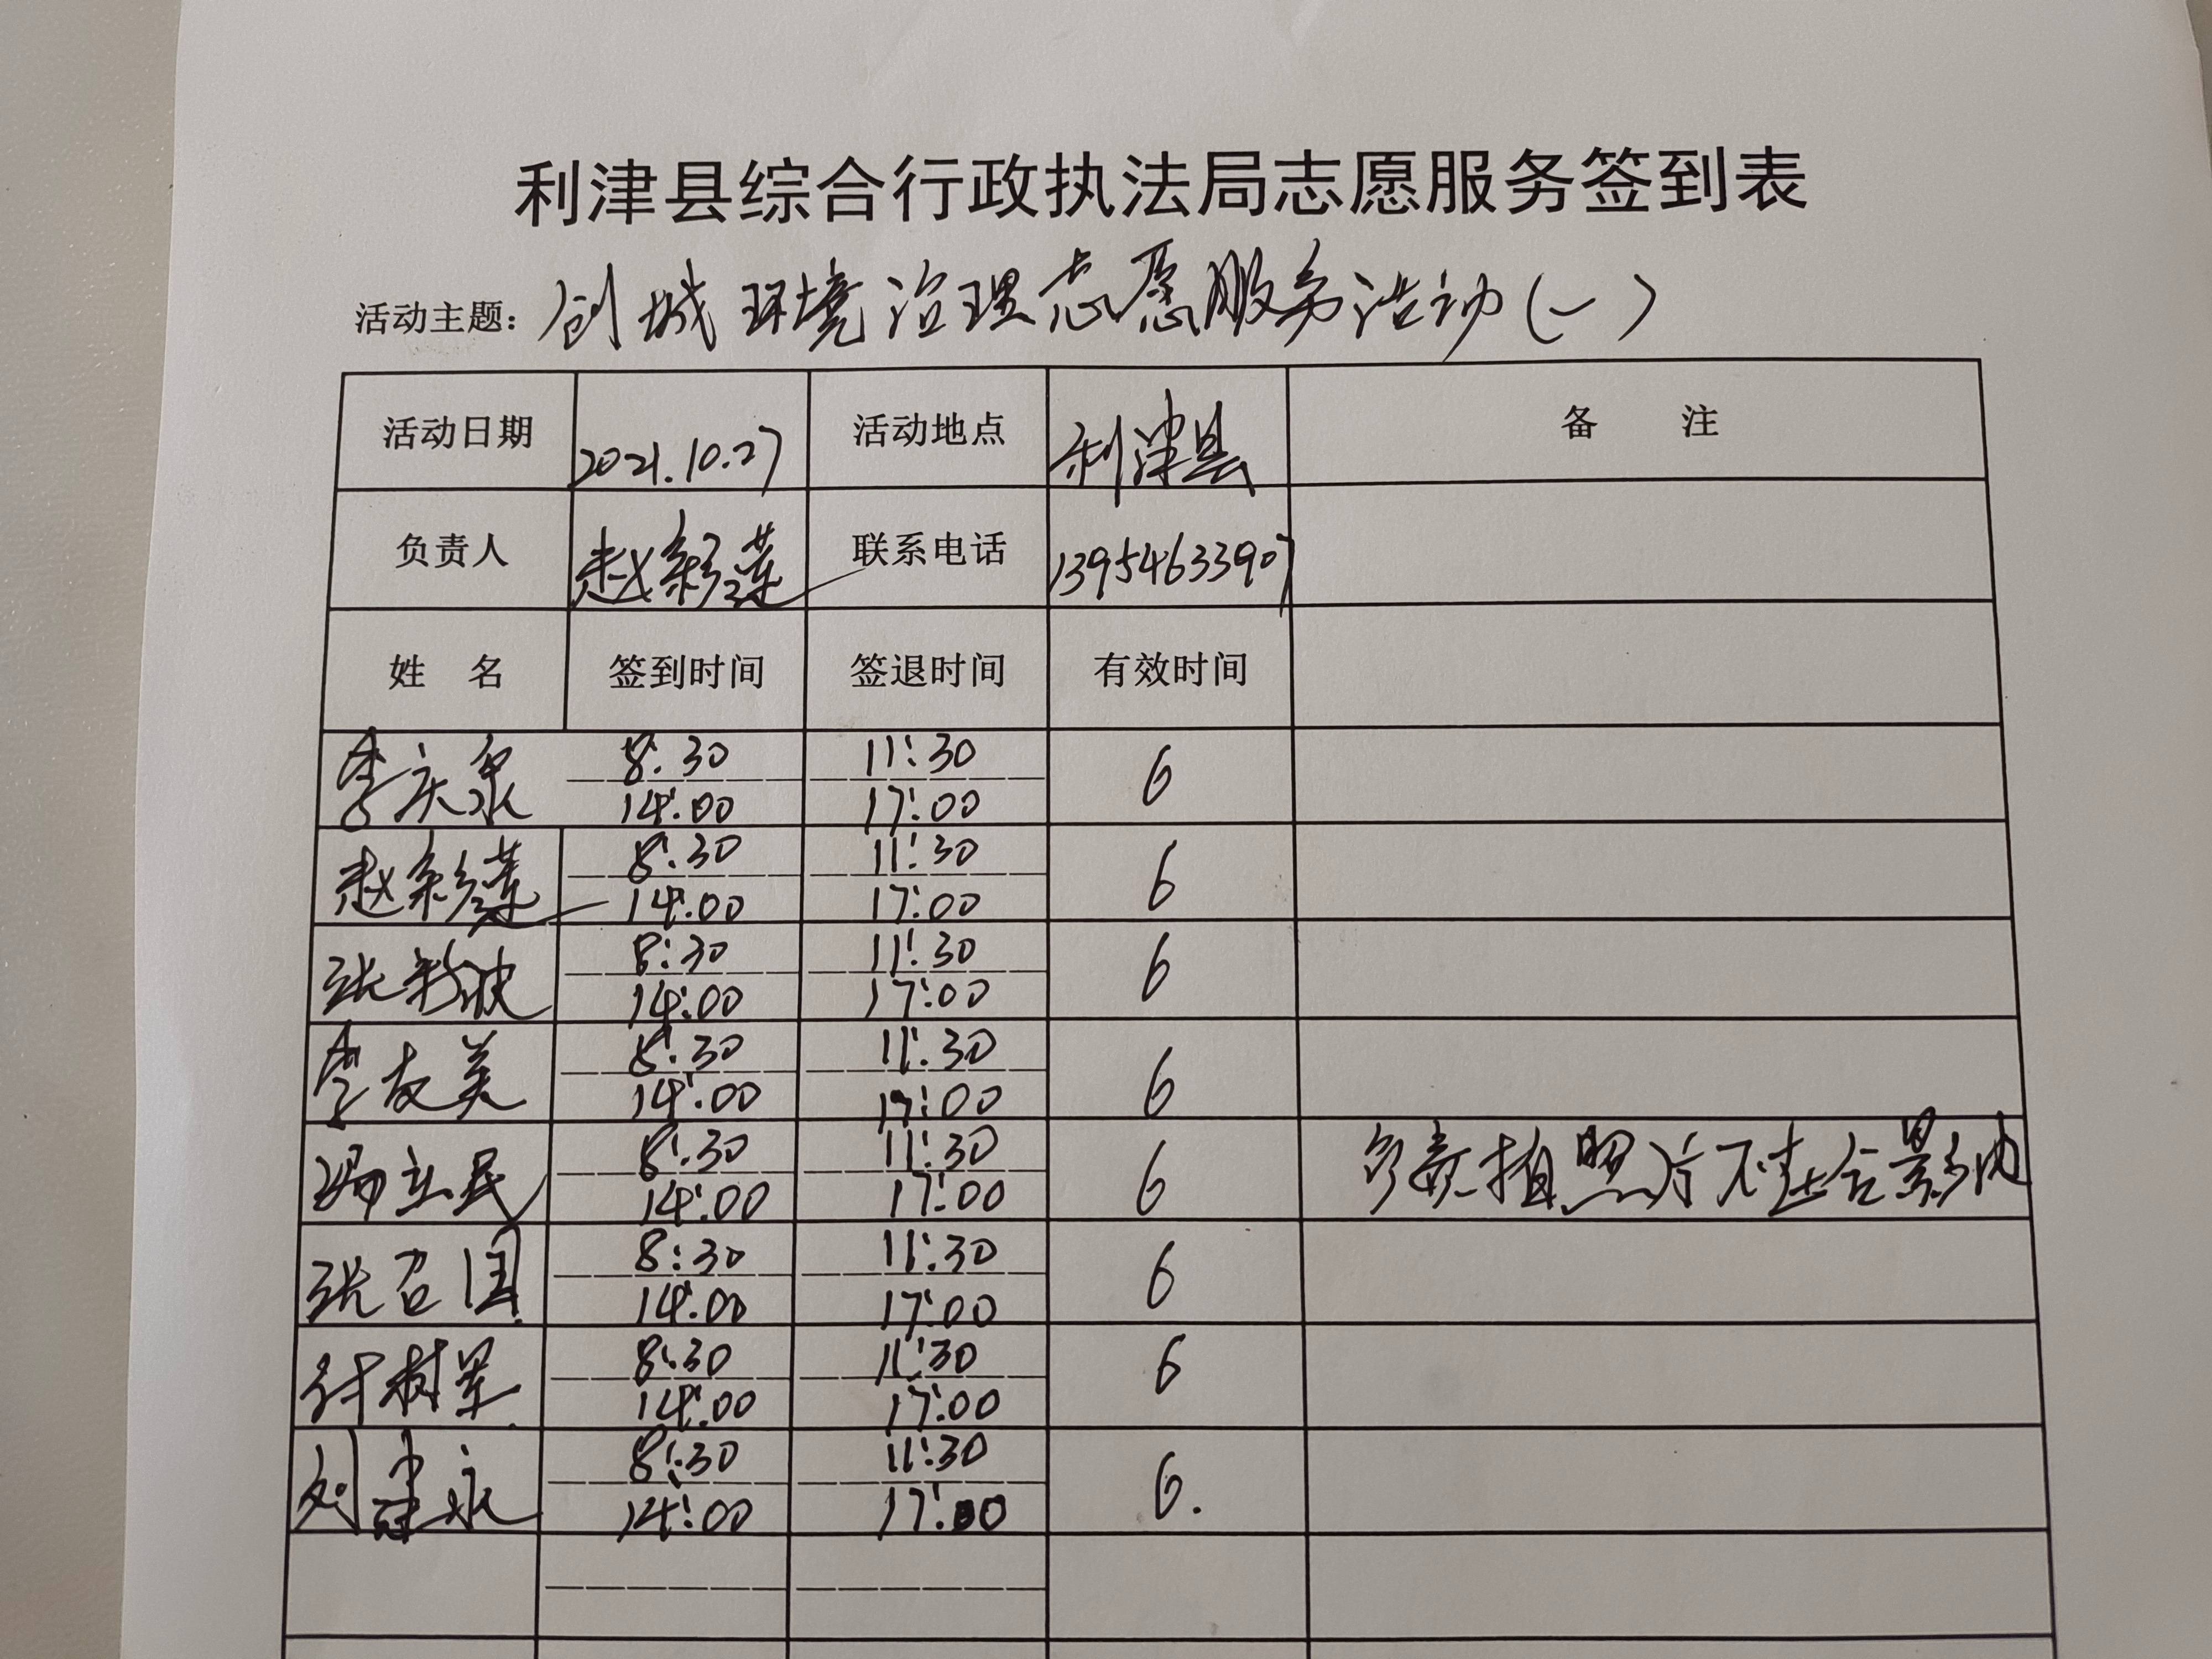 利津县综合行政执法局志愿服务签到表
活动主题：创城环境治理志愿服务活动(一)
活动日期 2021.10.27 活动地点 利津县 备 注
负责人 赵彩莲 联系电话 13954633907
姓 名 签到时间 签退时间 有效时间
李庆泉 8:30 11:30 6
14:00 17:00
赵彩莲 8:30 11:30 6
14:00 17:00
张 波 8:30 11:30 6
14:00 17:00
李友美 8:30 11:30 6
14:00 17:00
冯立民 8:30 11:30 6 负责拍照片不在合影内
14:00 17:00
张召国 8:30 11:30 6
14:00 17:00
付树军 8:30 11:30 6
14:00 17:00
刘建永 8:30 11:30 6.
14:00 17:00